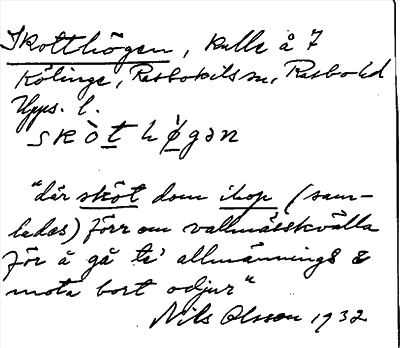 Skotthögen, kulle å 7
Kölinge, Rasbokils sn, Rasbo hd
Upps. l.
skòt hø̀gən
"där sköt dom ihop (sam-
lades) förr om vallmässkvälla
för å gå te' allmännings &
mota bort odjur"
Nils Olsson 1932